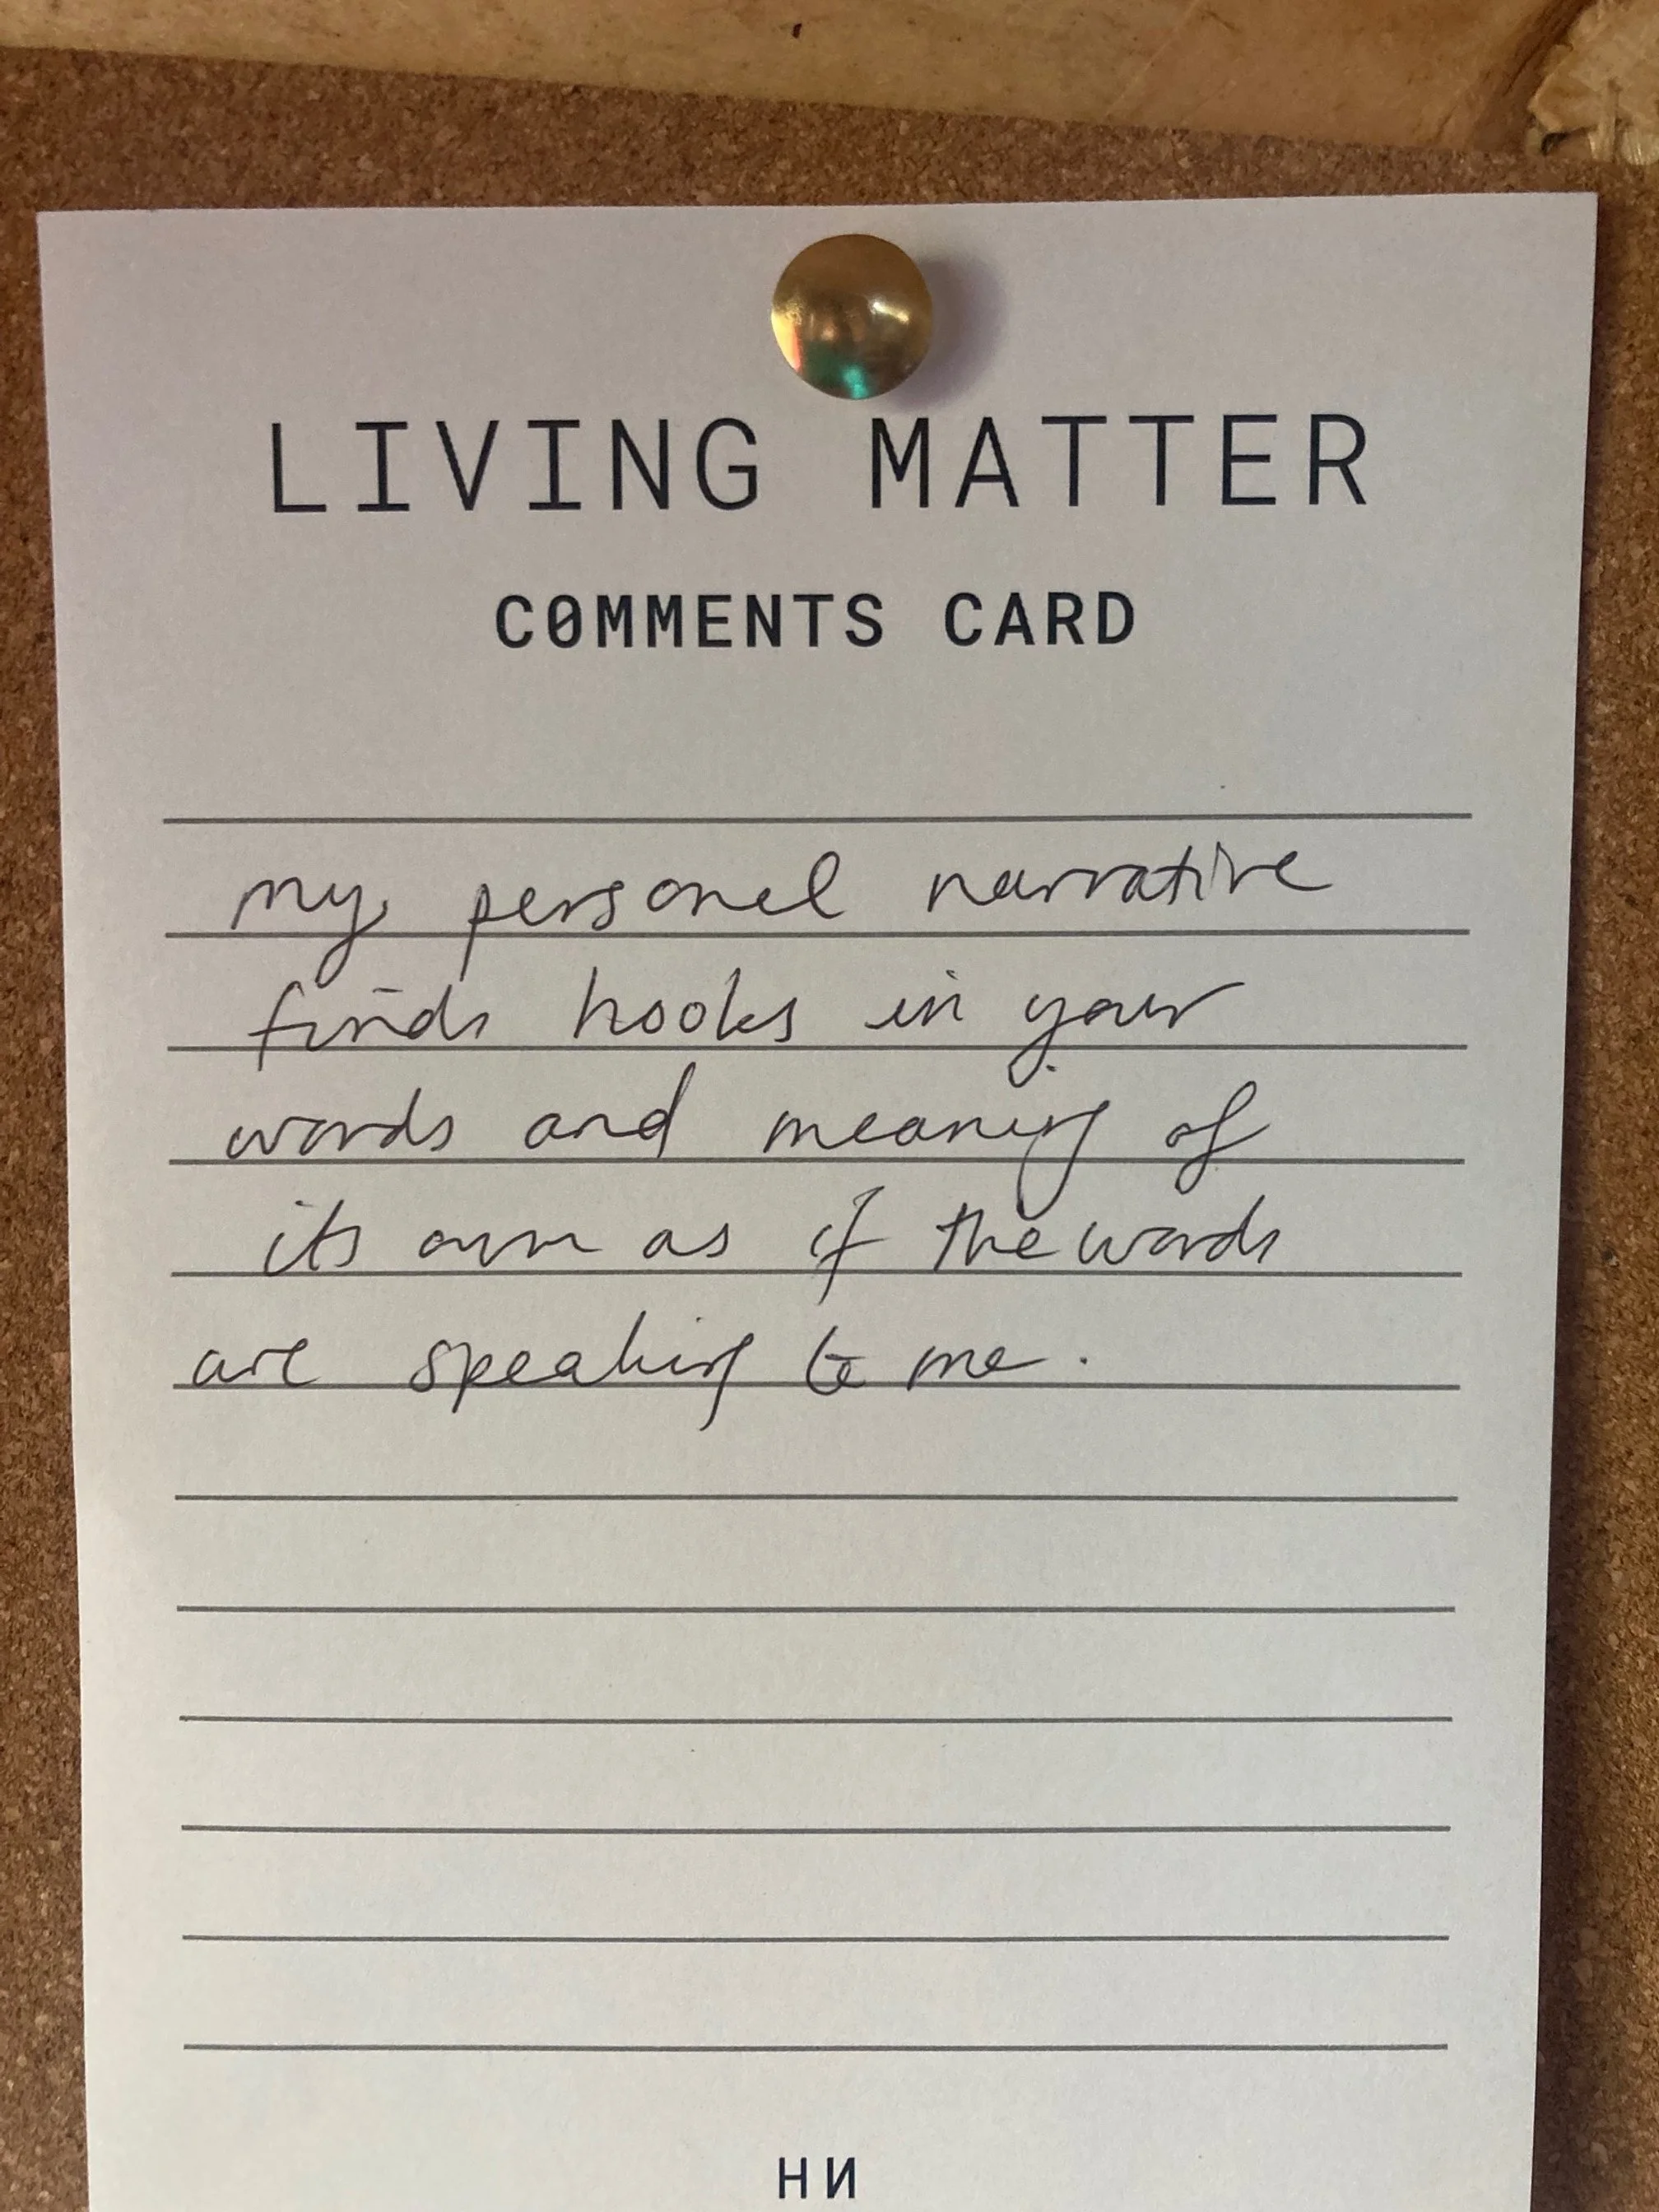 LIVING MATTER
C0MMENTS CARD
my personal narrative
finds hooks in your
words and meaning of
its own as if the words
are speaking to me.
HИ